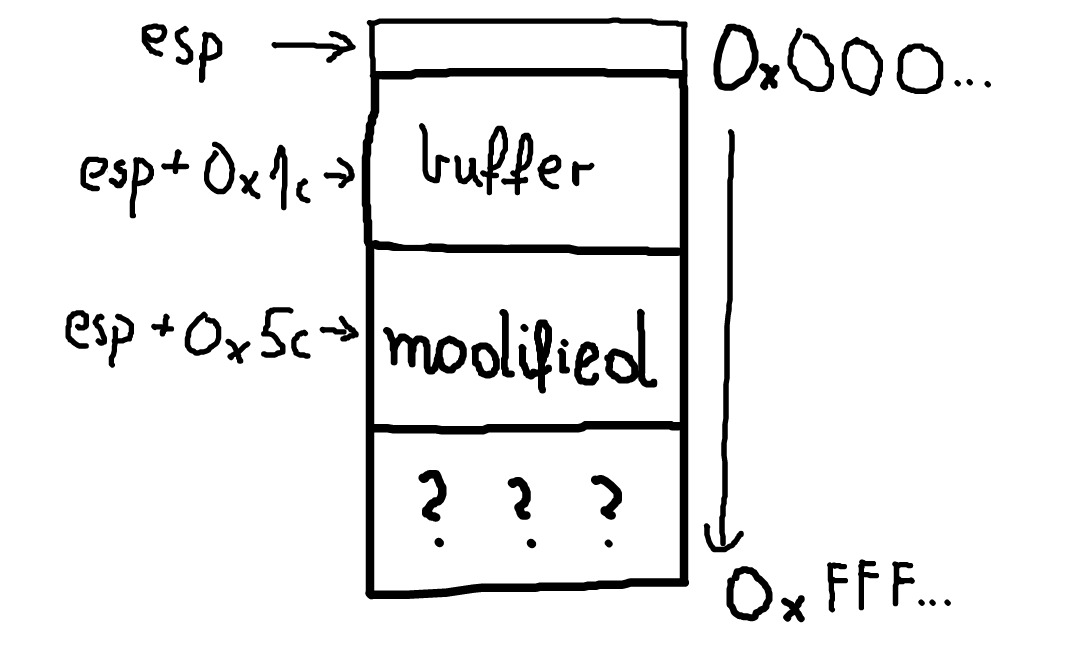 esp
0x000...
esp + 0x1c
buffer
esp + 0x5c
modified
? ? ?
0xFFF...